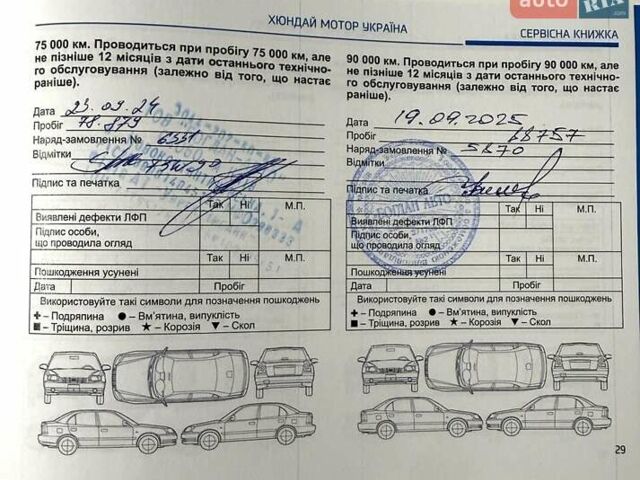 auto RIA
ХЮНДАЙ МОТОР УКРАЇНА
СЕРВІСНА КНИЖКА
75 000 км. Проводиться при пробігу 75 000 км, але
не пізніше 12 місяців з дати останнього технічно-
го обслуговування (залежно від того, що настає
раніше).
Дата 23.09.24
Пробіг 78.879
Наряд-замовлення № 6331
Відмітки
Підпис та печатка
Так Ні М.П.
Виявлені дефекти ЛФП
Підпис особи,
що проводила огляд
Так Ні М.П.
Пошкодження усунені
Дата Пробіг
Використовуйте такі символи для позначення пошкоджень
+ – Подряпина ● – Вм'ятина, випуклість
■ – Тріщина, розрив ★ – Корозія ▼ – Скол
90 000 км. Проводиться при пробігу 90 000 км, але
не пізніше 12 місяців з дати останнього технічно-
го обслуговування (залежно від того, що настає
раніше).
Дата 19.09.2025
Пробіг 88757
Наряд-замовлення № 5870
Відмітки
Підпис та печатка
Так Ні М.П.
Виявлені дефекти ЛФП
Підпис особи,
що проводила огляд
Так Ні М.П.
Пошкодження усунені
Дата Пробіг
Використовуйте такі символи для позначення пошкоджень
+ – Подряпина ● – Вм'ятина, випуклість
■ – Тріщина, розрив ★ – Корозія ▼ – Скол
29